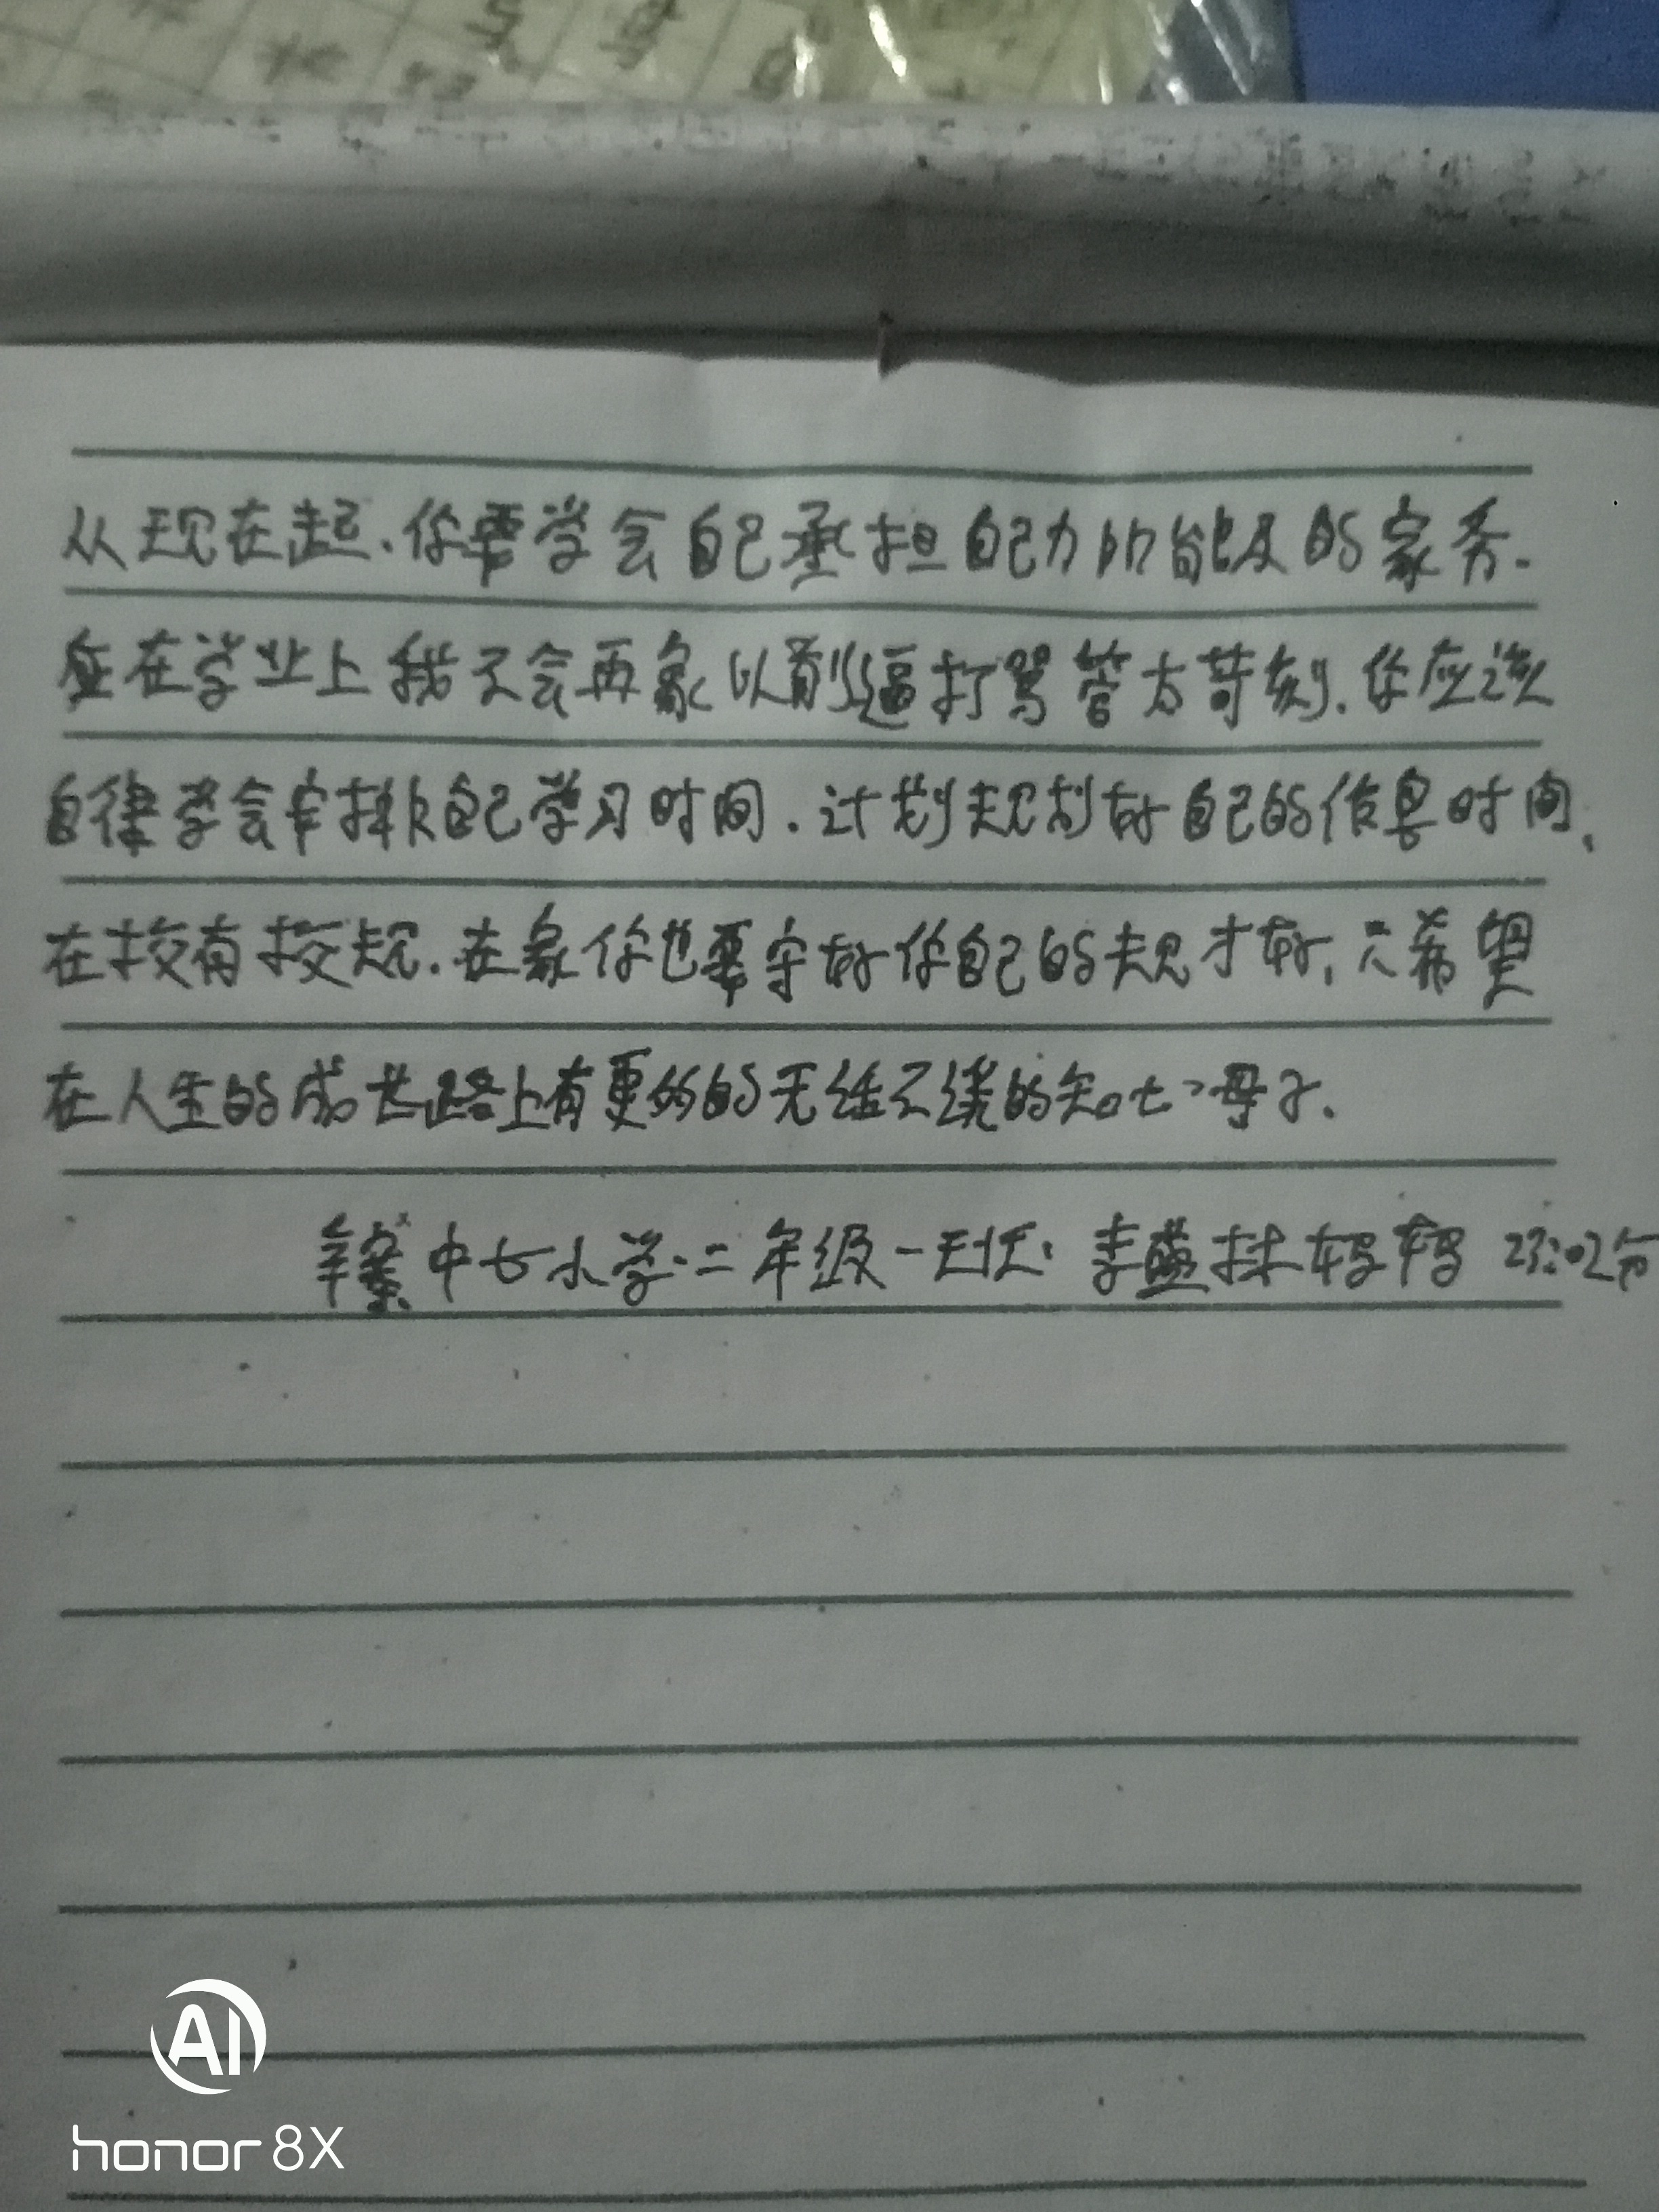 从现在起.你要学会自己承担自己力所能及的家务.
在学业上我不会再象以前逼打骂管太苛刻.你应该
自律学会安排自己学习时间.计划规划好自己的作息时间、
在校有校规.在家你也要守好你自己的规才好,只希望
在人生的成长路上有更多的的无话不谈的知心母子.
中七小学二年级一王 李 林妈妈 23:02分
AI
honor 8X